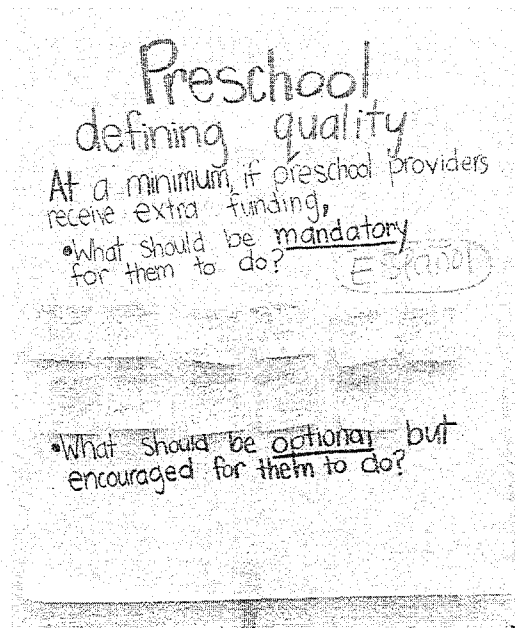 Preschool
defining quality
At a minimum, if preschool providers
receive extra funding,
•What should be mandatory
for them to do?
Español
•What should be optional but
encouraged for them to do?